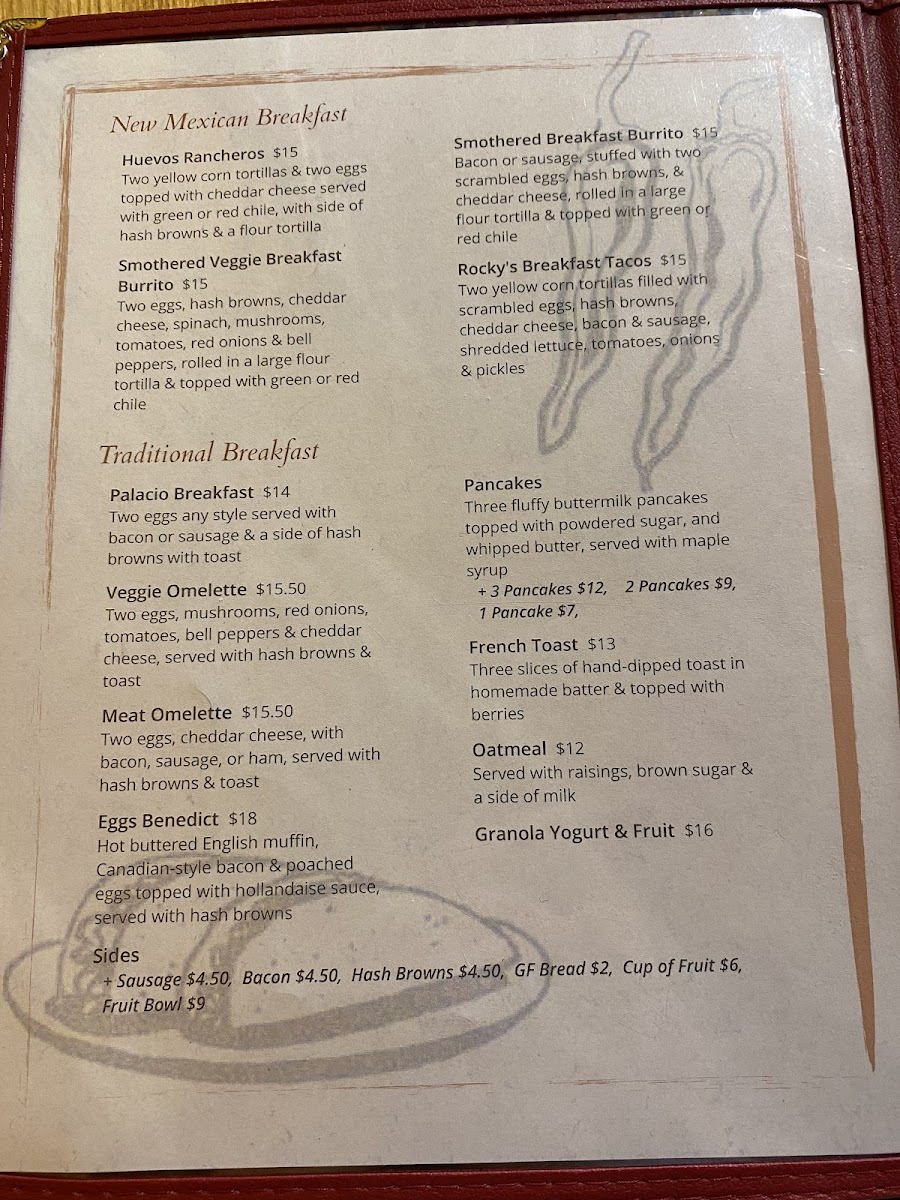 New Mexican Breakfast
Huevos Rancheros $15
Two yellow corn tortillas & two eggs
topped with cheddar cheese served
with green or red chile, with side of
hash browns & a flour tortilla
Smothered Veggie Breakfast
Burrito $15
Two eggs, hash browns, cheddar
cheese, spinach, mushrooms,
tomatoes, red onions & bell
peppers, rolled in a large flour
tortilla & topped with green or red
chile
Smothered Breakfast Burrito $15
Bacon or sausage, stuffed with two
scrambled eggs, hash browns, &
cheddar cheese, rolled in a large
flour tortilla & topped with green or
red chile
Rocky's Breakfast Tacos $15
Two yellow corn tortillas filled with
scrambled eggs, hash browns,
cheddar cheese, bacon & sausage,
shredded lettuce, tomatoes, onions
& pickles
Traditional Breakfast
Palacio Breakfast $14
Two eggs any style served with
bacon or sausage & a side of hash
browns with toast
Veggie Omelette $15.50
Two eggs, mushrooms, red onions,
tomatoes, bell peppers & cheddar
cheese, served with hash browns &
toast
Meat Omelette $15.50
Two eggs, cheddar cheese, with
bacon, sausage, or ham, served with
hash browns & toast
Eggs Benedict $18
Hot buttered English muffin,
Canadian-style bacon & poached
eggs topped with hollandaise sauce,
served with hash browns
Pancakes
Three fluffy buttermilk pancakes
topped with powdered sugar, and
whipped butter, served with maple
syrup
+ 3 Pancakes $12, 2 Pancakes $9,
1 Pancake $7,
French Toast $13
Three slices of hand-dipped toast in
homemade batter & topped with
berries
Oatmeal $12
Served with raisings, brown sugar &
a side of milk
Granola Yogurt & Fruit $16
Sides
+ Sausage $4.50, Bacon $4.50, Hash Browns $4.50, GF Bread $2, Cup of Fruit $6,
Fruit Bowl $9